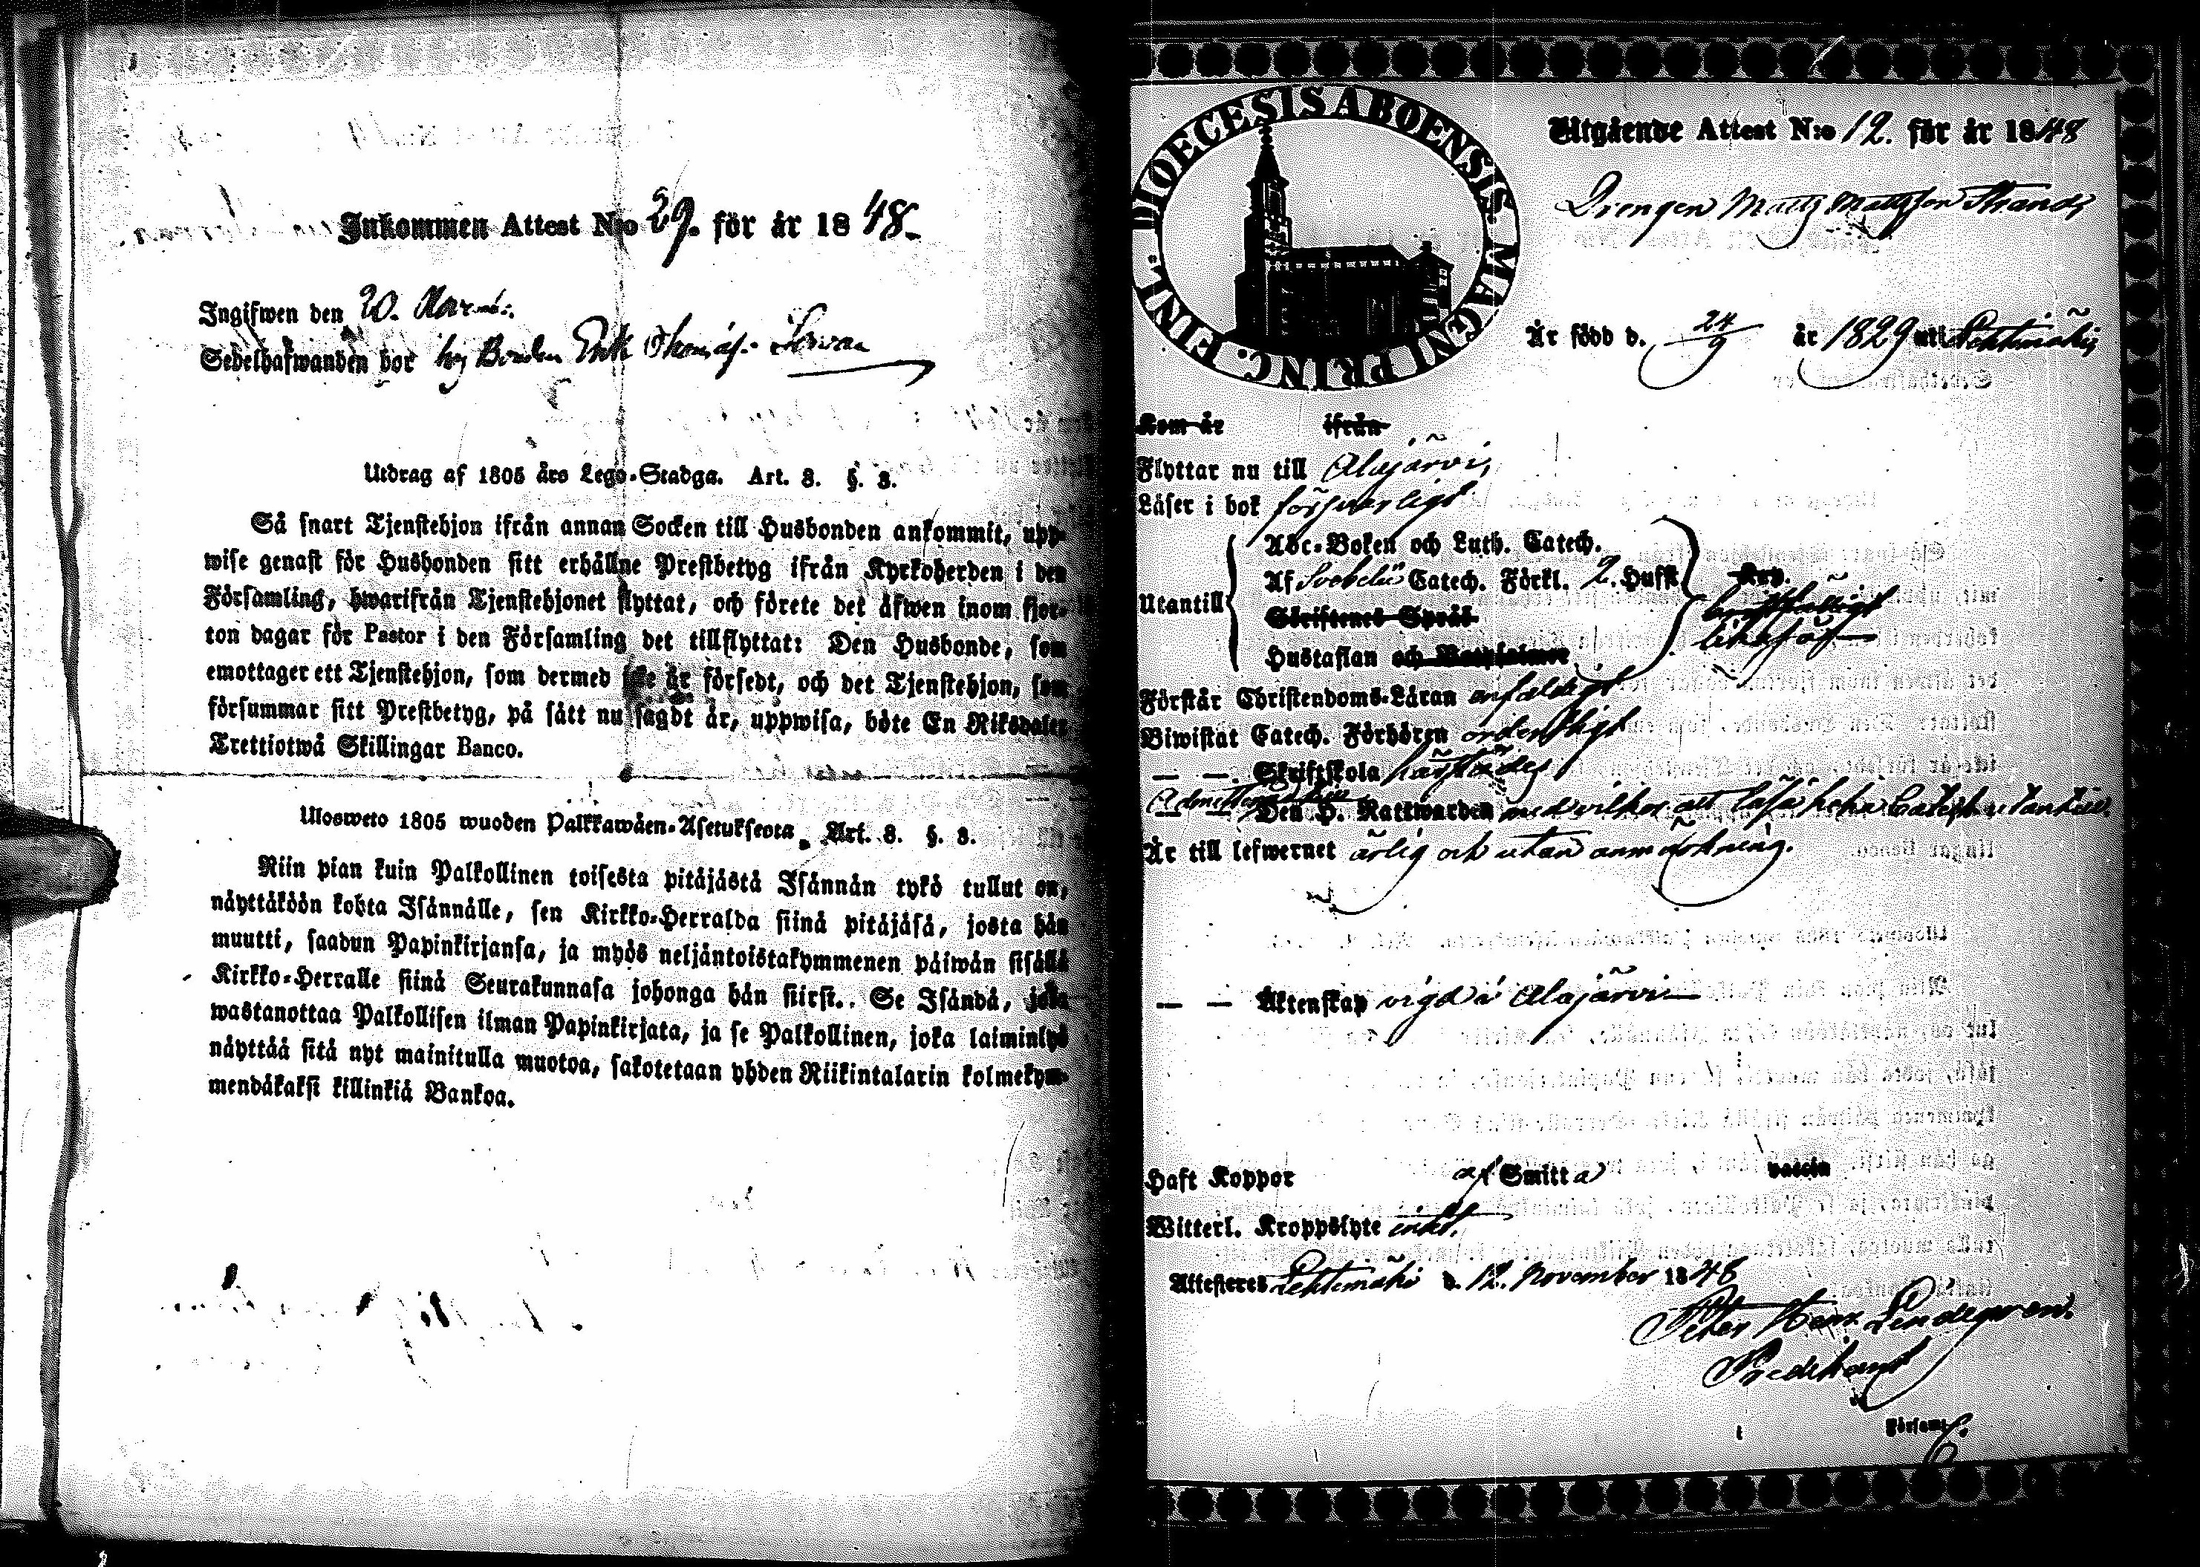 Inkommen Attest N:o 29. för år 1848.
Ingifwen den 20.
Sedelhafwanden bor hos Bonden Erik Thomasson
Utdrag af 1805 års Lego-Stadga. Art. 8. §. 3.
Så snart Tjenstehjon ifrån annan Socken till Husbonden ankommit, upp-
wise genast för Husbonden sitt erhållne Prestbetyg ifrån Kyrkoherden i den
Församling, hwarifrån Tjenstehjonet flyttat, och förete det äfwen inom fjor-
ton dagar för Pastor i den Församling det tillflyttat: Den Husbonde, som
emottager ett Tjenstehjon, som dermed icke är försedt, och det Tjenstehjon, som
försummar sitt Prestbetyg, på sätt nu sagdt är, uppwisa, böte En Riksdaler
Trettiotwå Skillingar Banco.
Ulosweto 1805 wuoden Palkkawäen-Asetuksesta, Art. 8. §. 3.
Niin pian kuin Palkollinen toisesta pitäjästä Isännän tykö tullut on,
näyttäköön kohta Isännälle, sen Kirkko-Herralda siinä pitäjäsä, josta hän
muutti, saadun Papinkirjansa, ja myös neljäntoistakymmenen päiwän sisällä
Kirkko-Herralle siinä Seurakunnasa johonga hän siirst. Se Isändä, joka
wastanottaa Palkollisen ilman Papinkirjata, ja se Palkollinen, joka laiminlyö
näyttää sitä nyt mainitulla muotoa, sakotetaan yhden Riikintalarin kolmekym-
mendäkaksi killinkiä Bankoa.
FINL. DIOECESIS ABOENSIS MAGNI PRINC.
Utgående Attest N:o 12. för år 1848
Drengen Matts Mattsson Strand,
Är född d. 24/9 år 1829 uti Lehtimäki,
Kom år ifrån
Flyttar nu till Alajärvi,
Läser i bok försvarligt
Utantill
Abc-Boken och Luth. Catech.
Af Svebelii Catech. Förkl. 2. Hufst.
Skriftenes Språk
Hustaflan och
likaså
Förstår Christendoms-Läran enfaldigt
Biwistat Catech. Förhören ordentligt
— — Skriftskola härstädes
— — Den H. Nattwarden med vilkor att läsa hela Catech. utantill.
Är till lefwernet ärlig och utan anmärkning.
— — Äktenskap vigd i Alajärvi
Haft Koppor af Smitta vaccin
Witterl. Kroppslyte intet.
Attesteres Lehtimäki d. 12. November 1848
Peter Henr. Lindegren.
Predikant
Församl.